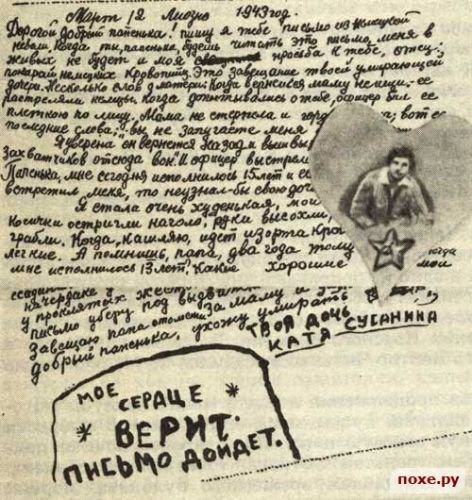 Март, 12 Лиозно 1943 год.
Дорогой добрый папенька! Пишу я тебе письмо из немецкой
неволи. Когда ты, папенька, будешь читать это письмо, меня в
живых не будет и моя просьба к тебе, отец:
покарай немецких кровопийц. Это завещание твоей умирающей
дочери. Несколько слов о матери. Когда вернешься маму не ищи. ее
растреляли немцы. Когда допытывались о тебе, офицер бил ее
плеткою по лицу. Мама не стерпела и гор вот ее
последние слова: "вы не запугаете меня
Я уверена он вернется назад и вышвы
захватчиков отсюда вон. И офицер выстрел
Папенька, мне сегодня исполнилось 15 лет и ес
встретил меня, то неузнал-бы свою доч
Я стала очень худенькая, мои
Косички остригли наголо, руки высохли,
грабли. Когда кашляю, идет изорта кро
легкие. А помнишь, папа, два года тому когда
мне исполнилось 13 лет. Какие хорошие мои
на чердаке
у проклятых
письмо под
Завещаю папа отомсти за маму и
добрый папенька, ухожу умирать
ТВОЯ ДОЧЬ
КАТЯ СУСАНИНА
МОЕ
СЕРДЦЕ
ВЕРИТ.
ПИСЬМО ДОЙДЕТ.
noxe.ru